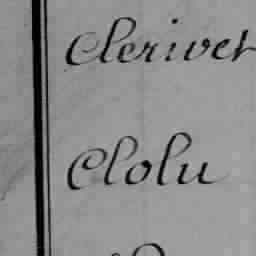 Clerivet
Clolu